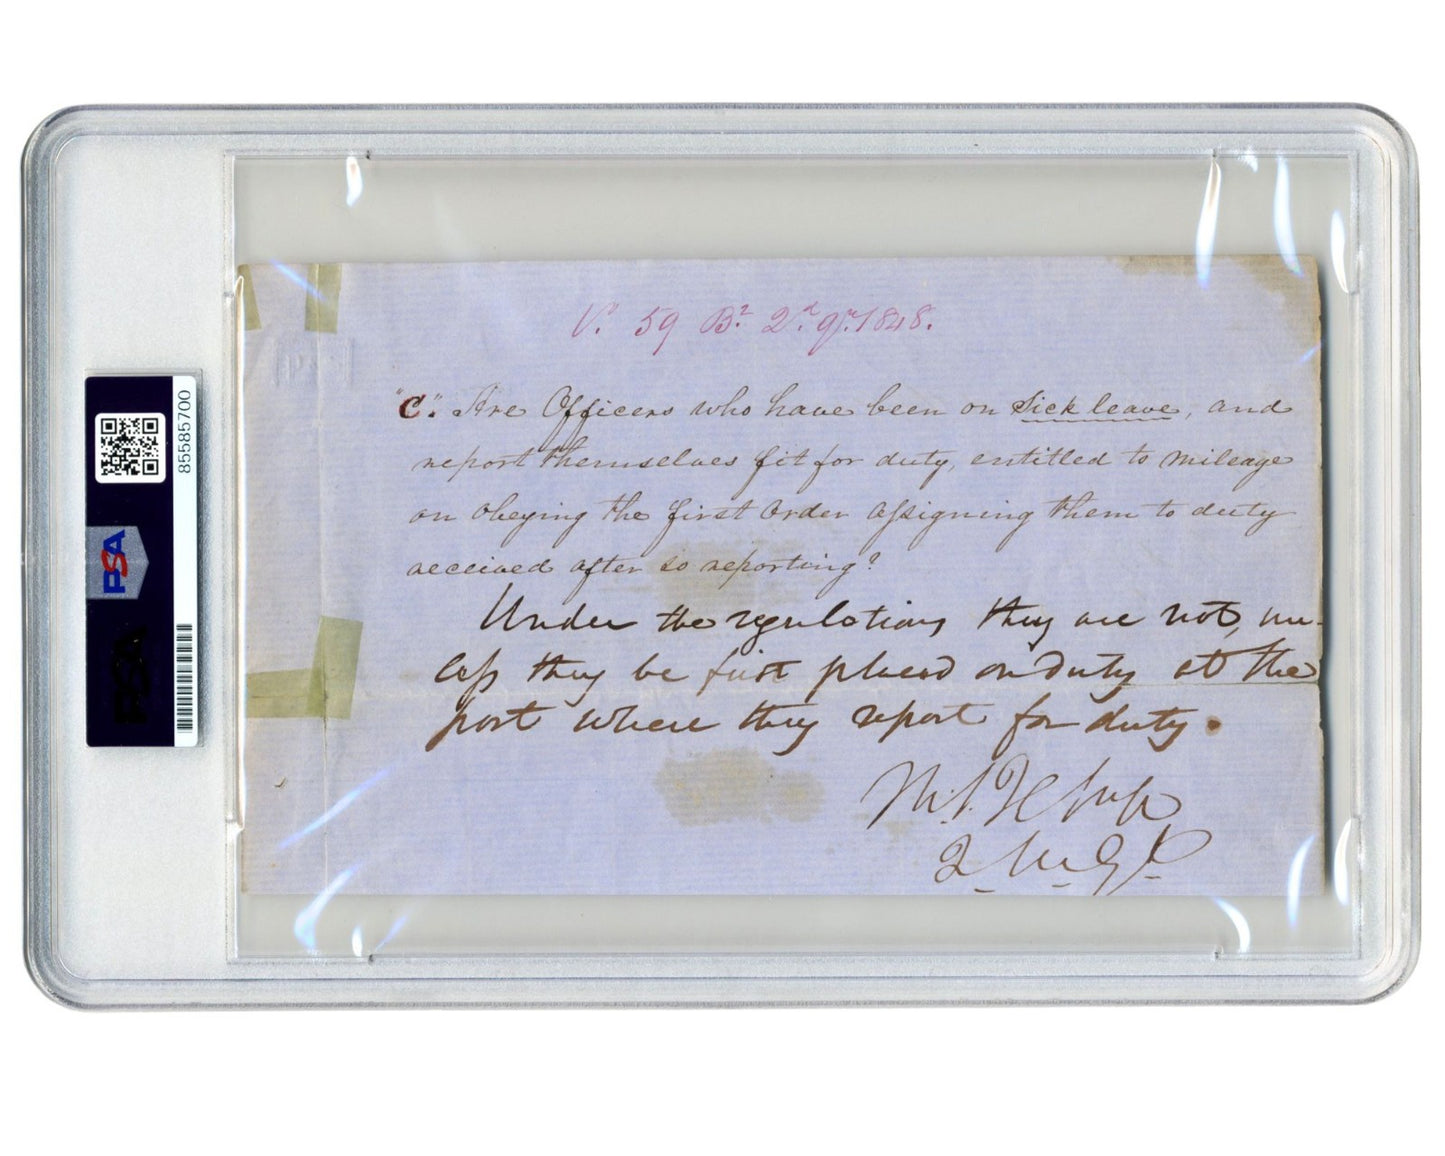 V. 59 Br. 2d qr. 1848.
"C". Are Officers who have been on Sick leave, and
report themselves fit for duty, entitled to mileage
on obeying the first Order assigning them to duty
received after so reporting?
Under the regulations they are not, un-
less they be first placed on duty at the
post where they report for duty.
Th. S. Jesup
Q. M. Gl.
85585700
PSA
PSA